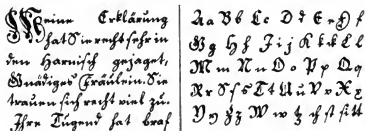 Meine Erklärung
hat Sie recht sehr in
den Harnisch gejaget,
Gnädiges Fräulein. Sie
trauen sich recht viel zu.
Ihre Tugend hat braf
Aa Bb Cc Dd Ee Ff
Gg Hh Jij Kk Ll
Mm Nn Oo Pp Qq
Rr Sſs Tt Uu Vv Xx
Yy Zz W w tz ch ſt ſi tt